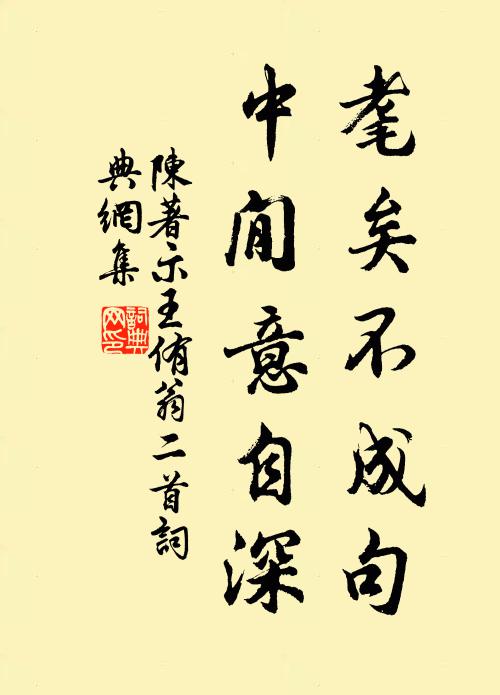 耄矣不成句
中間意自深
陳著示王侑翁二首詞
典網集
詞典
网印